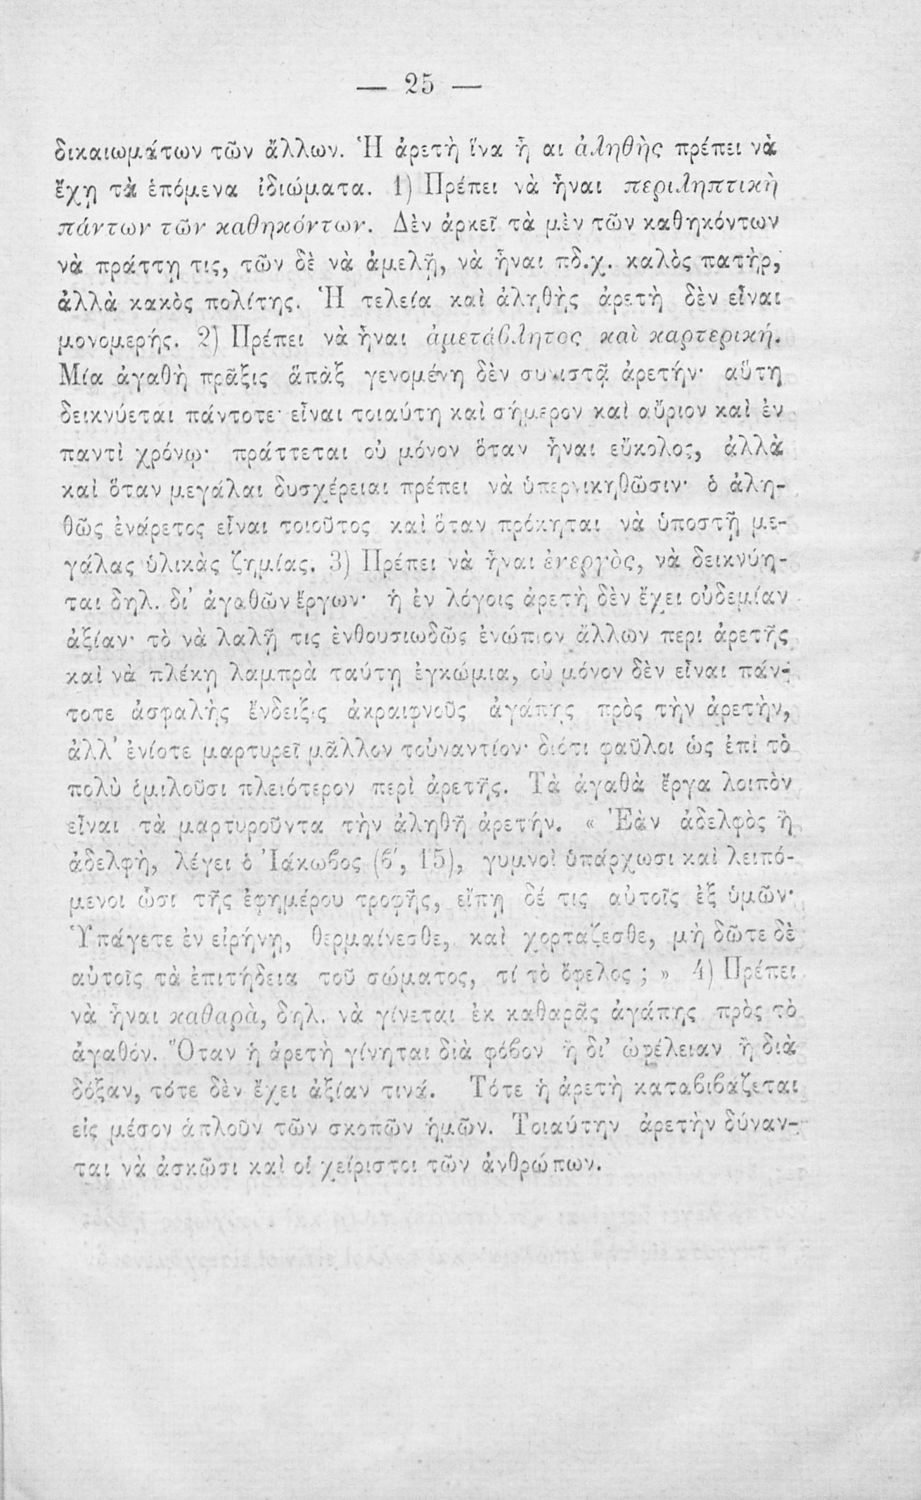 — 25 —
δικαιωμάτων τῶν ἄλλων. Ἡ ἀρετὴ ἵνα ᾖ αι ἀληθὴς πρέπει νὰ
ἔχῃ τὰ ἑπόμενα ἰδιώματα. 1) Πρέπει νὰ ἦναι περιληπτικὴ
πάντων τῶν καθηκόντων. Δὲν ἀρκεῖ τὰ μὲν τῶν καθηκόντων
νὰ πράττῃ τις, τῶν δὲ νὰ ἀμελῇ, νὰ ἦναι πδ.χ. καλὸς πατὴρ,
ἀλλὰ κακὸς πολίτης. Ἡ τελεία καὶ ἀληθὴς ἀρετὴ δὲν εἶναι
μονομερής. 2) Πρέπει νὰ ἦναι ἀμετάβλητος καὶ καρτερική.
Μία ἀγαθὴ πρᾶξις ἅπαξ γενομένη δὲν συνιστᾷ ἀρετήν· αὕτη
δεικνύεται πάντοτε· εἶναι τοιαύτη καὶ σήμερον καὶ αὔριον καὶ ἐν
παντὶ χρόνῳ· πράττεται οὐ μόνον ὅταν ἦναι εὔκολος, ἀλλὰ
καὶ ὅταν μεγάλαι δυσχέρειαι πρέπει νὰ ὑπερνικηθῶσιν· ὁ ἀλη-
θῶς ἐνάρετος εἶναι τοιοῦτος καὶ ὅταν πρόκηται νὰ ὑποστῇ με-
γάλας ὑλικὰς ζημίας. 3) Πρέπει νὰ ἦναι ἐνεργὸς, νὰ δεικνύη-
ται δηλ. δι' ἀγαθῶν ἔργων· ἡ ἐν λόγοις ἀρετὴ δὲν ἔχει οὐδεμίαν
ἀξίαν· τὸ νὰ λαλῇ τις ἐνθουσιωδῶς ἐνώπιον ἄλλων περι ἀρετῆς
καὶ νὰ πλέκῃ λαμπρὰ ταύτῃ ἐγκώμια, οὐ μόνον δὲν εἶναι πάν-
τοτε ἀσφαλὴς ἔνδειξις ἀκραιφνοῦς ἀγάπης πρὸς τὴν ἀρετὴν,
ἀλλ' ἐνίοτε μαρτυρεῖ μᾶλλον τοὐναντίον· διότι φαῦλοι ὡς ἐπὶ τὸ
πολὺ ὁμιλοῦσι πλειότερον περὶ ἀρετῆς. Τὰ ἀγαθὰ ἔργα λοιπὸν
εἶναι τὰ μαρτυροῦντα τὴν ἀληθῆ ἀρετήν. « Ἐὰν ἀδελφὸς ἢ
ἀδελφὴ, λέγει ὁ Ἰάκωβος (β', 15), γυμνοὶ ὑπάρχωσι καὶ λειπό-
μενοι ὦσι τῆς ἐφημέρου τροφῆς, εἴπῃ δέ τις αὐτοῖς ἐξ ὑμῶν·
Ὑπάγετε ἐν εἰρήνῃ, θερμαίνεσθε, καὶ χορτάζεσθε, μὴ δῶτε δὲ
αὐτοῖς τὰ ἐπιτήδεια τοῦ σώματος, τί τὸ ὄφελος ; » 4) Πρέπει
νὰ ἦναι καθαρὰ, δηλ. νὰ γίνεται ἐκ καθαρᾶς ἀγάπης πρὸς τὸ
ἀγαθόν. Ὅταν ἡ ἀρετὴ γίνηται διὰ φόβον ἢ δι' ὠφέλειαν ἢ διὰ
δόξαν, τότε δὲν ἔχει ἀξίαν τινά. Τότε ἡ ἀρετὴ καταβιβάζεται
εἰς μέσον ἁπλοῦν τῶν σκοπῶν ἡμῶν. Τοιαύτην ἀρετὴν δύναν-
ται νὰ ἀσκῶσι καὶ οἱ χείριστοι τῶν ἀνθρώπων.